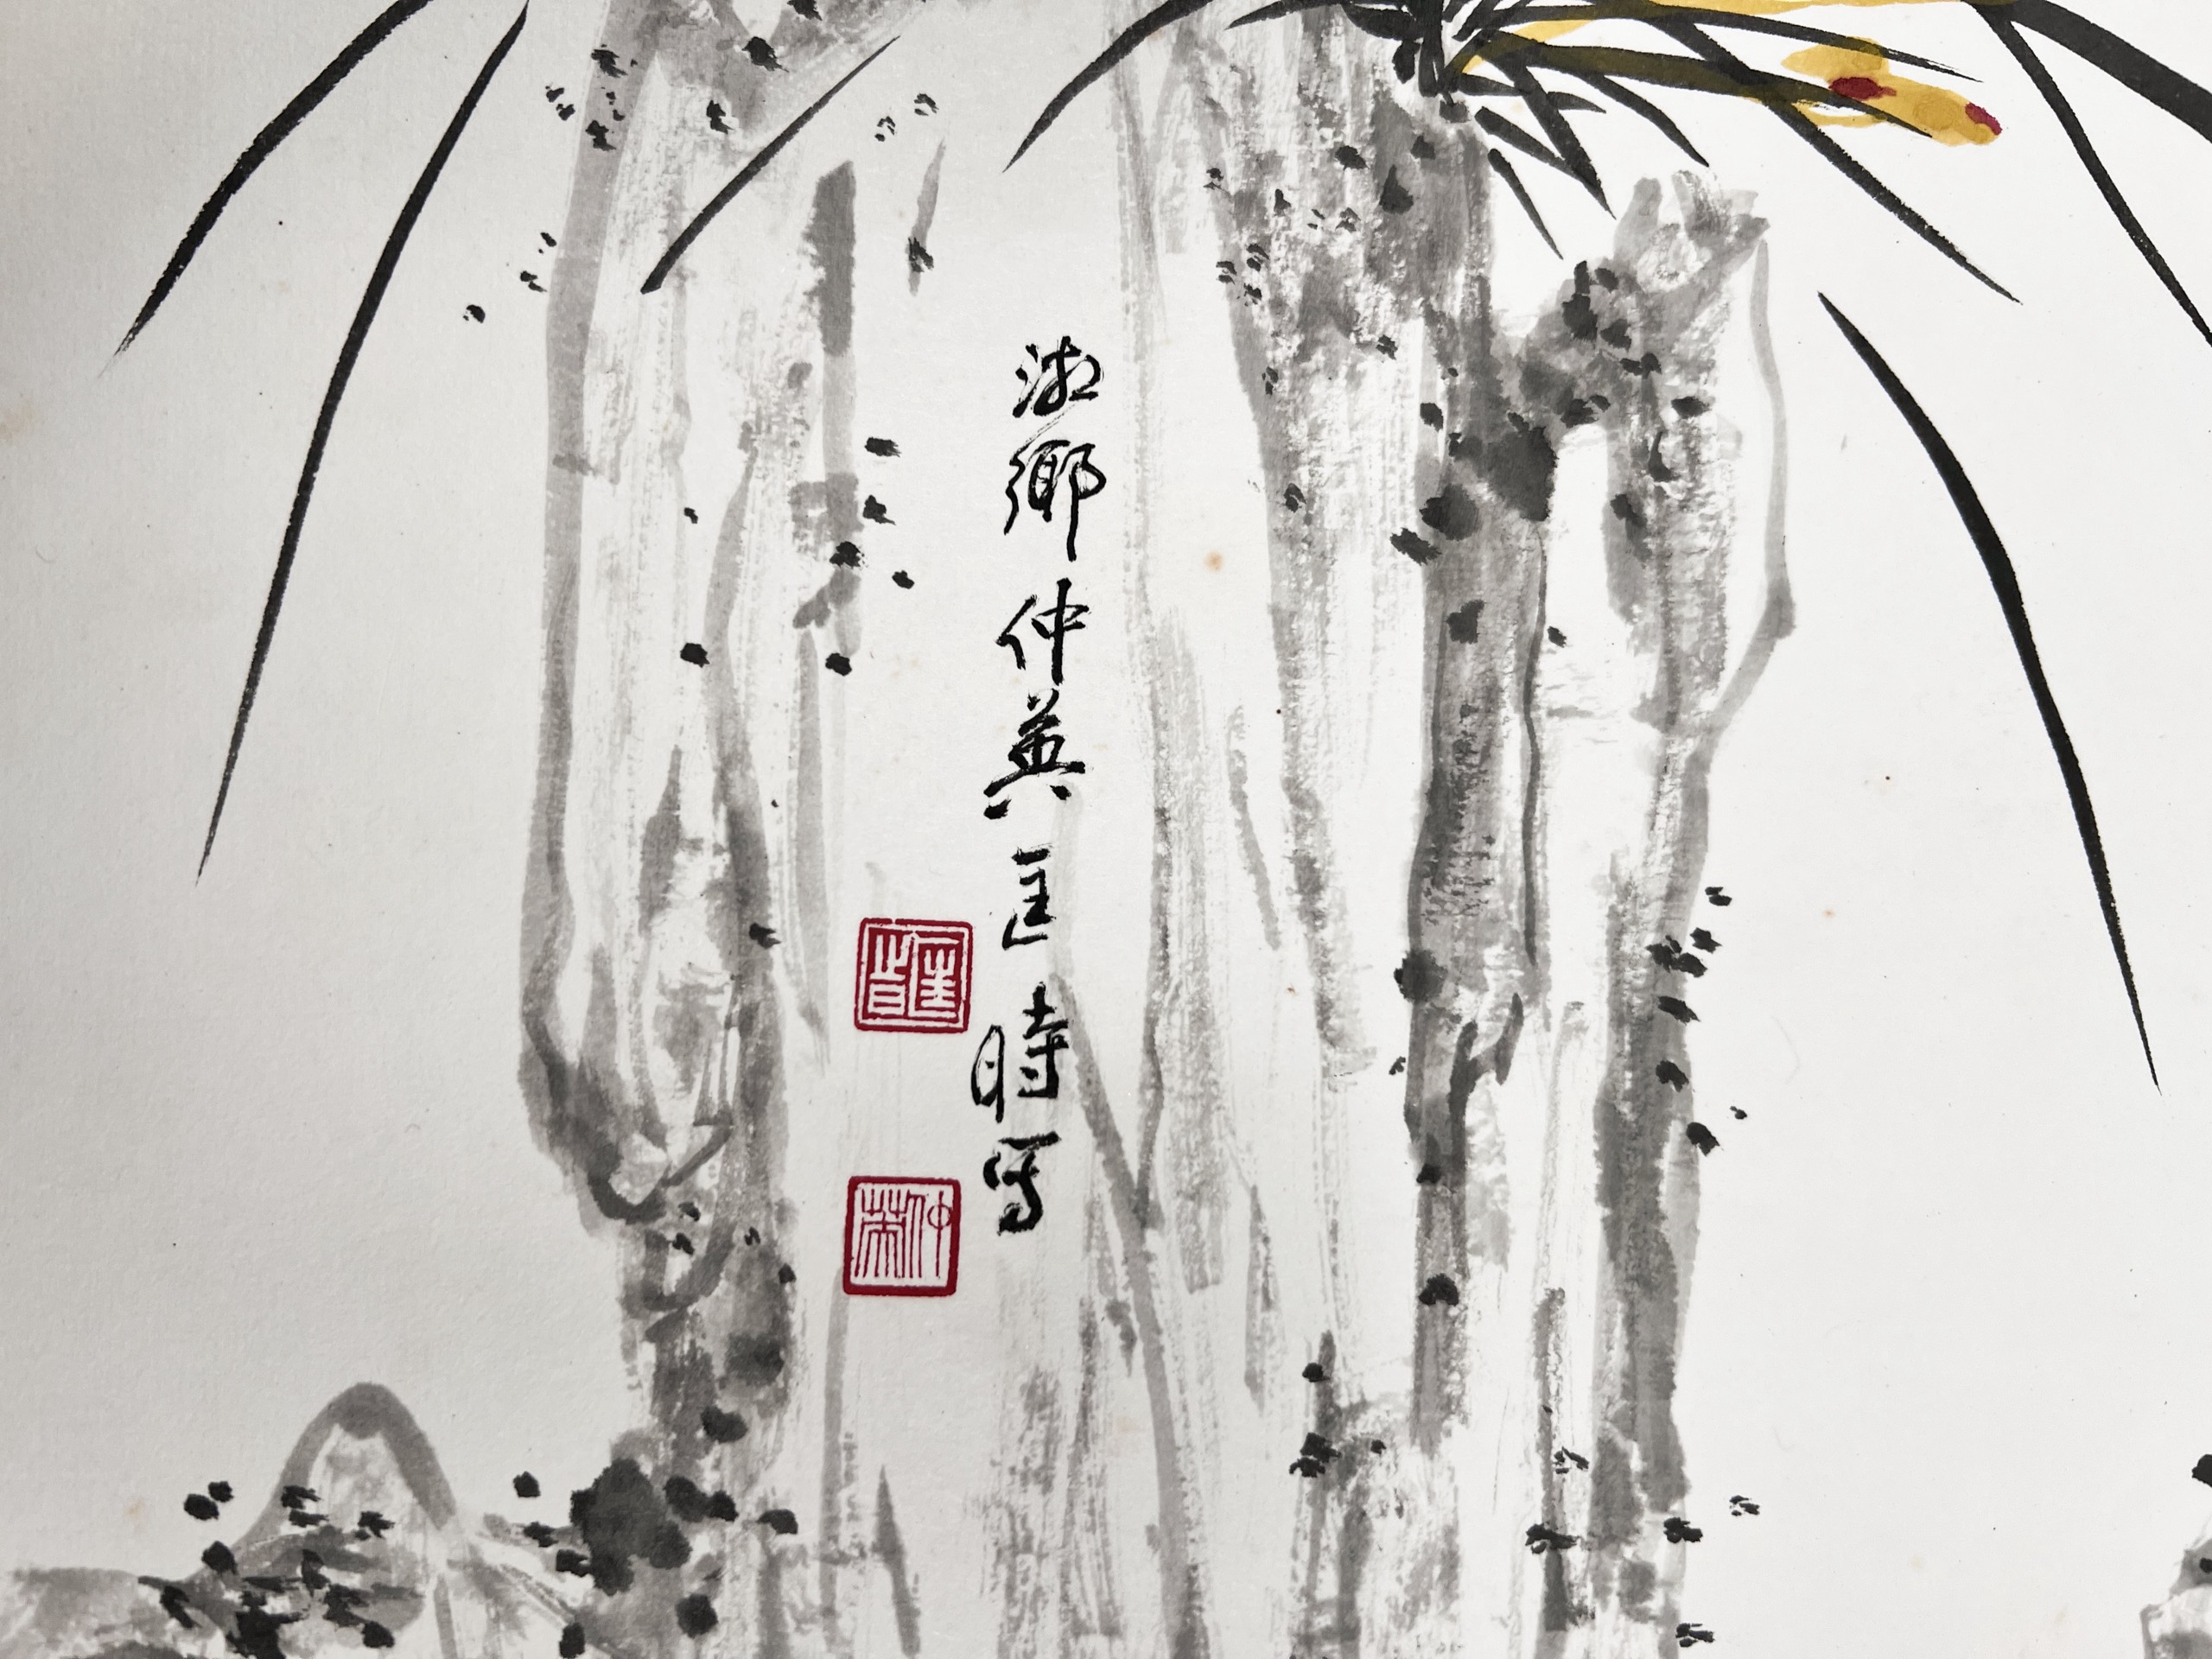 湘鄉仲英匡時寫
匡旹
仲英